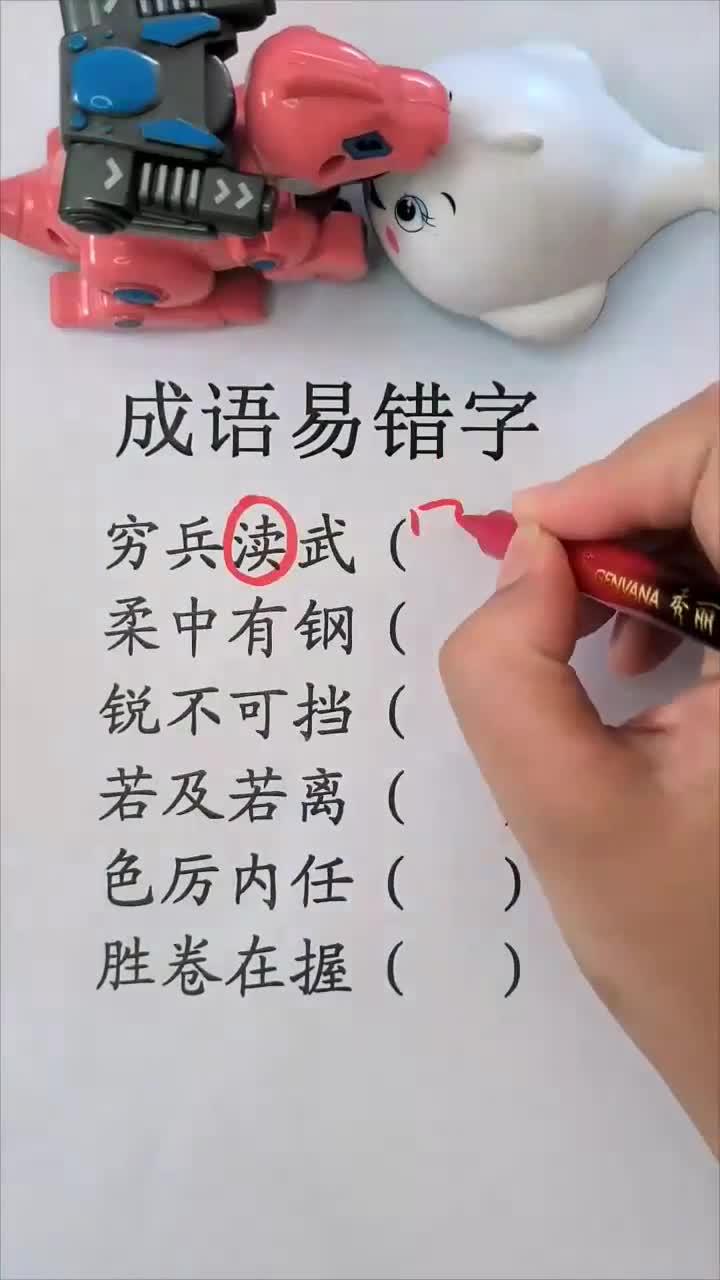 成语易错字
穷兵渎武（
柔中有钢（
锐不可挡（
若及若离（
色厉内任（ ）
胜卷在握（ ）
GENVANA